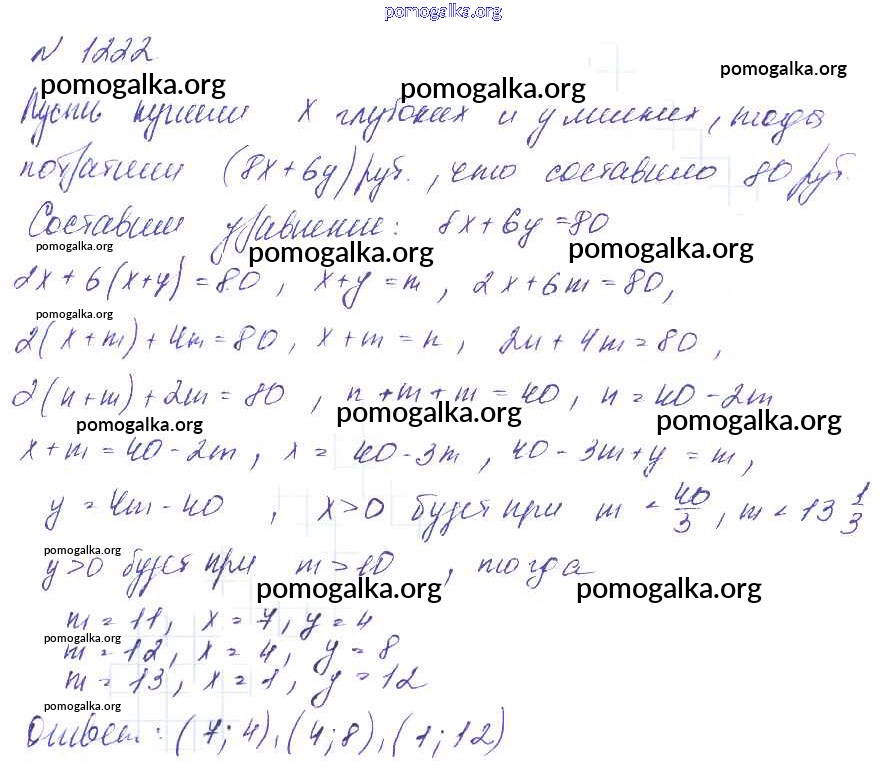 pomogalka.org
N 1222
pomogalka.org pomogalka.org pomogalka.org
Пусть купили x глубоких и y мелких, тогда
потратили (8x+6y) руб., что составило 80 руб.
Составим уравнение: 8x+6y=80
pomogalka.org pomogalka.org pomogalka.org
2x+6(x+y)=80, x+y=m, 2x+6m=80,
pomogalka.org
2(x+m)+4m=80, x+m=n, 2n+4m=80,
2(n+m)+2m=80, n+m+m=40, n=40-2m
pomogalka.org pomogalka.org pomogalka.org
x+m=40-2m, x=40-3m, 40-3m+y=m,
y=4m-40, x>0 будет при m<40/3, m<13 1/3
pomogalka.org
y>0 будет при m>10, тогда
pomogalka.org pomogalka.org
m=11, x=7, y=4
pomogalka.org
m=12, x=4, y=8
m=13, x=1, y=12
pomogalka.org
Ответ: (7;4),(4;8),(1;12)